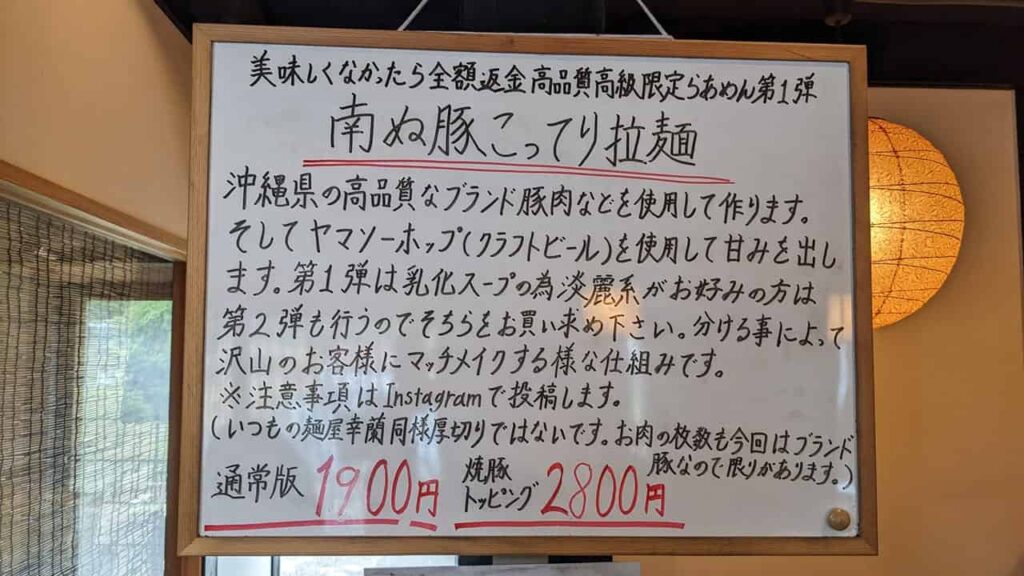 美味しくなかったら全額返金高品質高級限定らあめん第1弾
南ぬ豚こってり拉麺
沖縄県の高品質なブランド豚肉などを使用して作ります。
そしてヤマソーホップ(クラフトビール)を使用して甘みを出し
ます。第1弾は乳化スープの為淡麗系がお好みの方は
第2弾も行うのでそちらをお買い求め下さい。分ける事によって
沢山のお客様にマッチメイクする様な仕組みです。
※注意事項はInstagramで投稿します。
(いつもの麺屋幸蘭同様厚切りではないです。お肉の枚数も今回はブランド
豚なので限りがあります。)
通常版 1900円
焼豚
トッピング 2800円